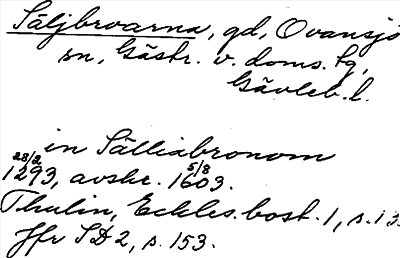 Säljbroarna, gd, Ovansjö
sn, Gästr. v. doms. tg,
Gävleb. l.
in Sälliabronom
28/2 1293, avskr. 5/8 1603.
Thulin, Eckles. bost. 1, s. 13.
Jfr SD 2, s. 153.